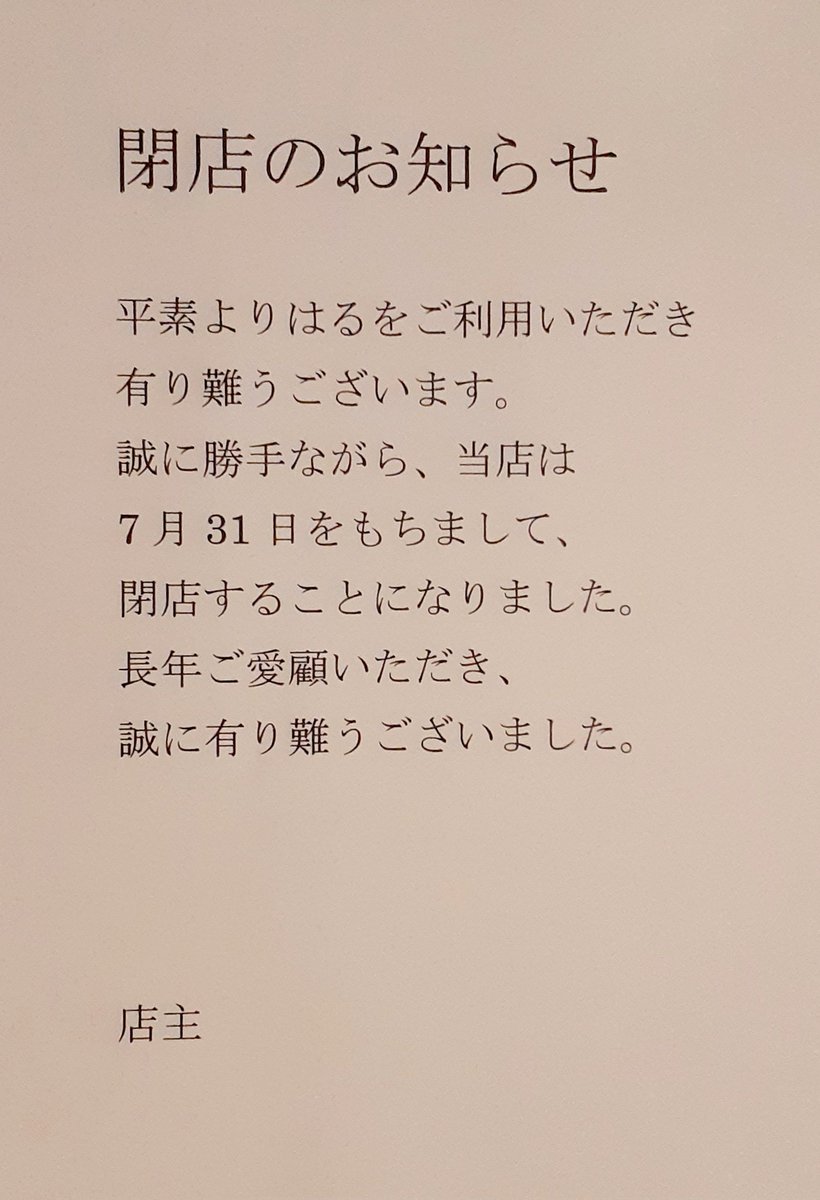 閉店のお知らせ
平素よりはるをご利用いただき
有り難うございます。
誠に勝手ながら、当店は
7 月 31 日をもちまして、
閉店することになりました。
長年ご愛顧いただき、
誠に有り難うございました。
店主